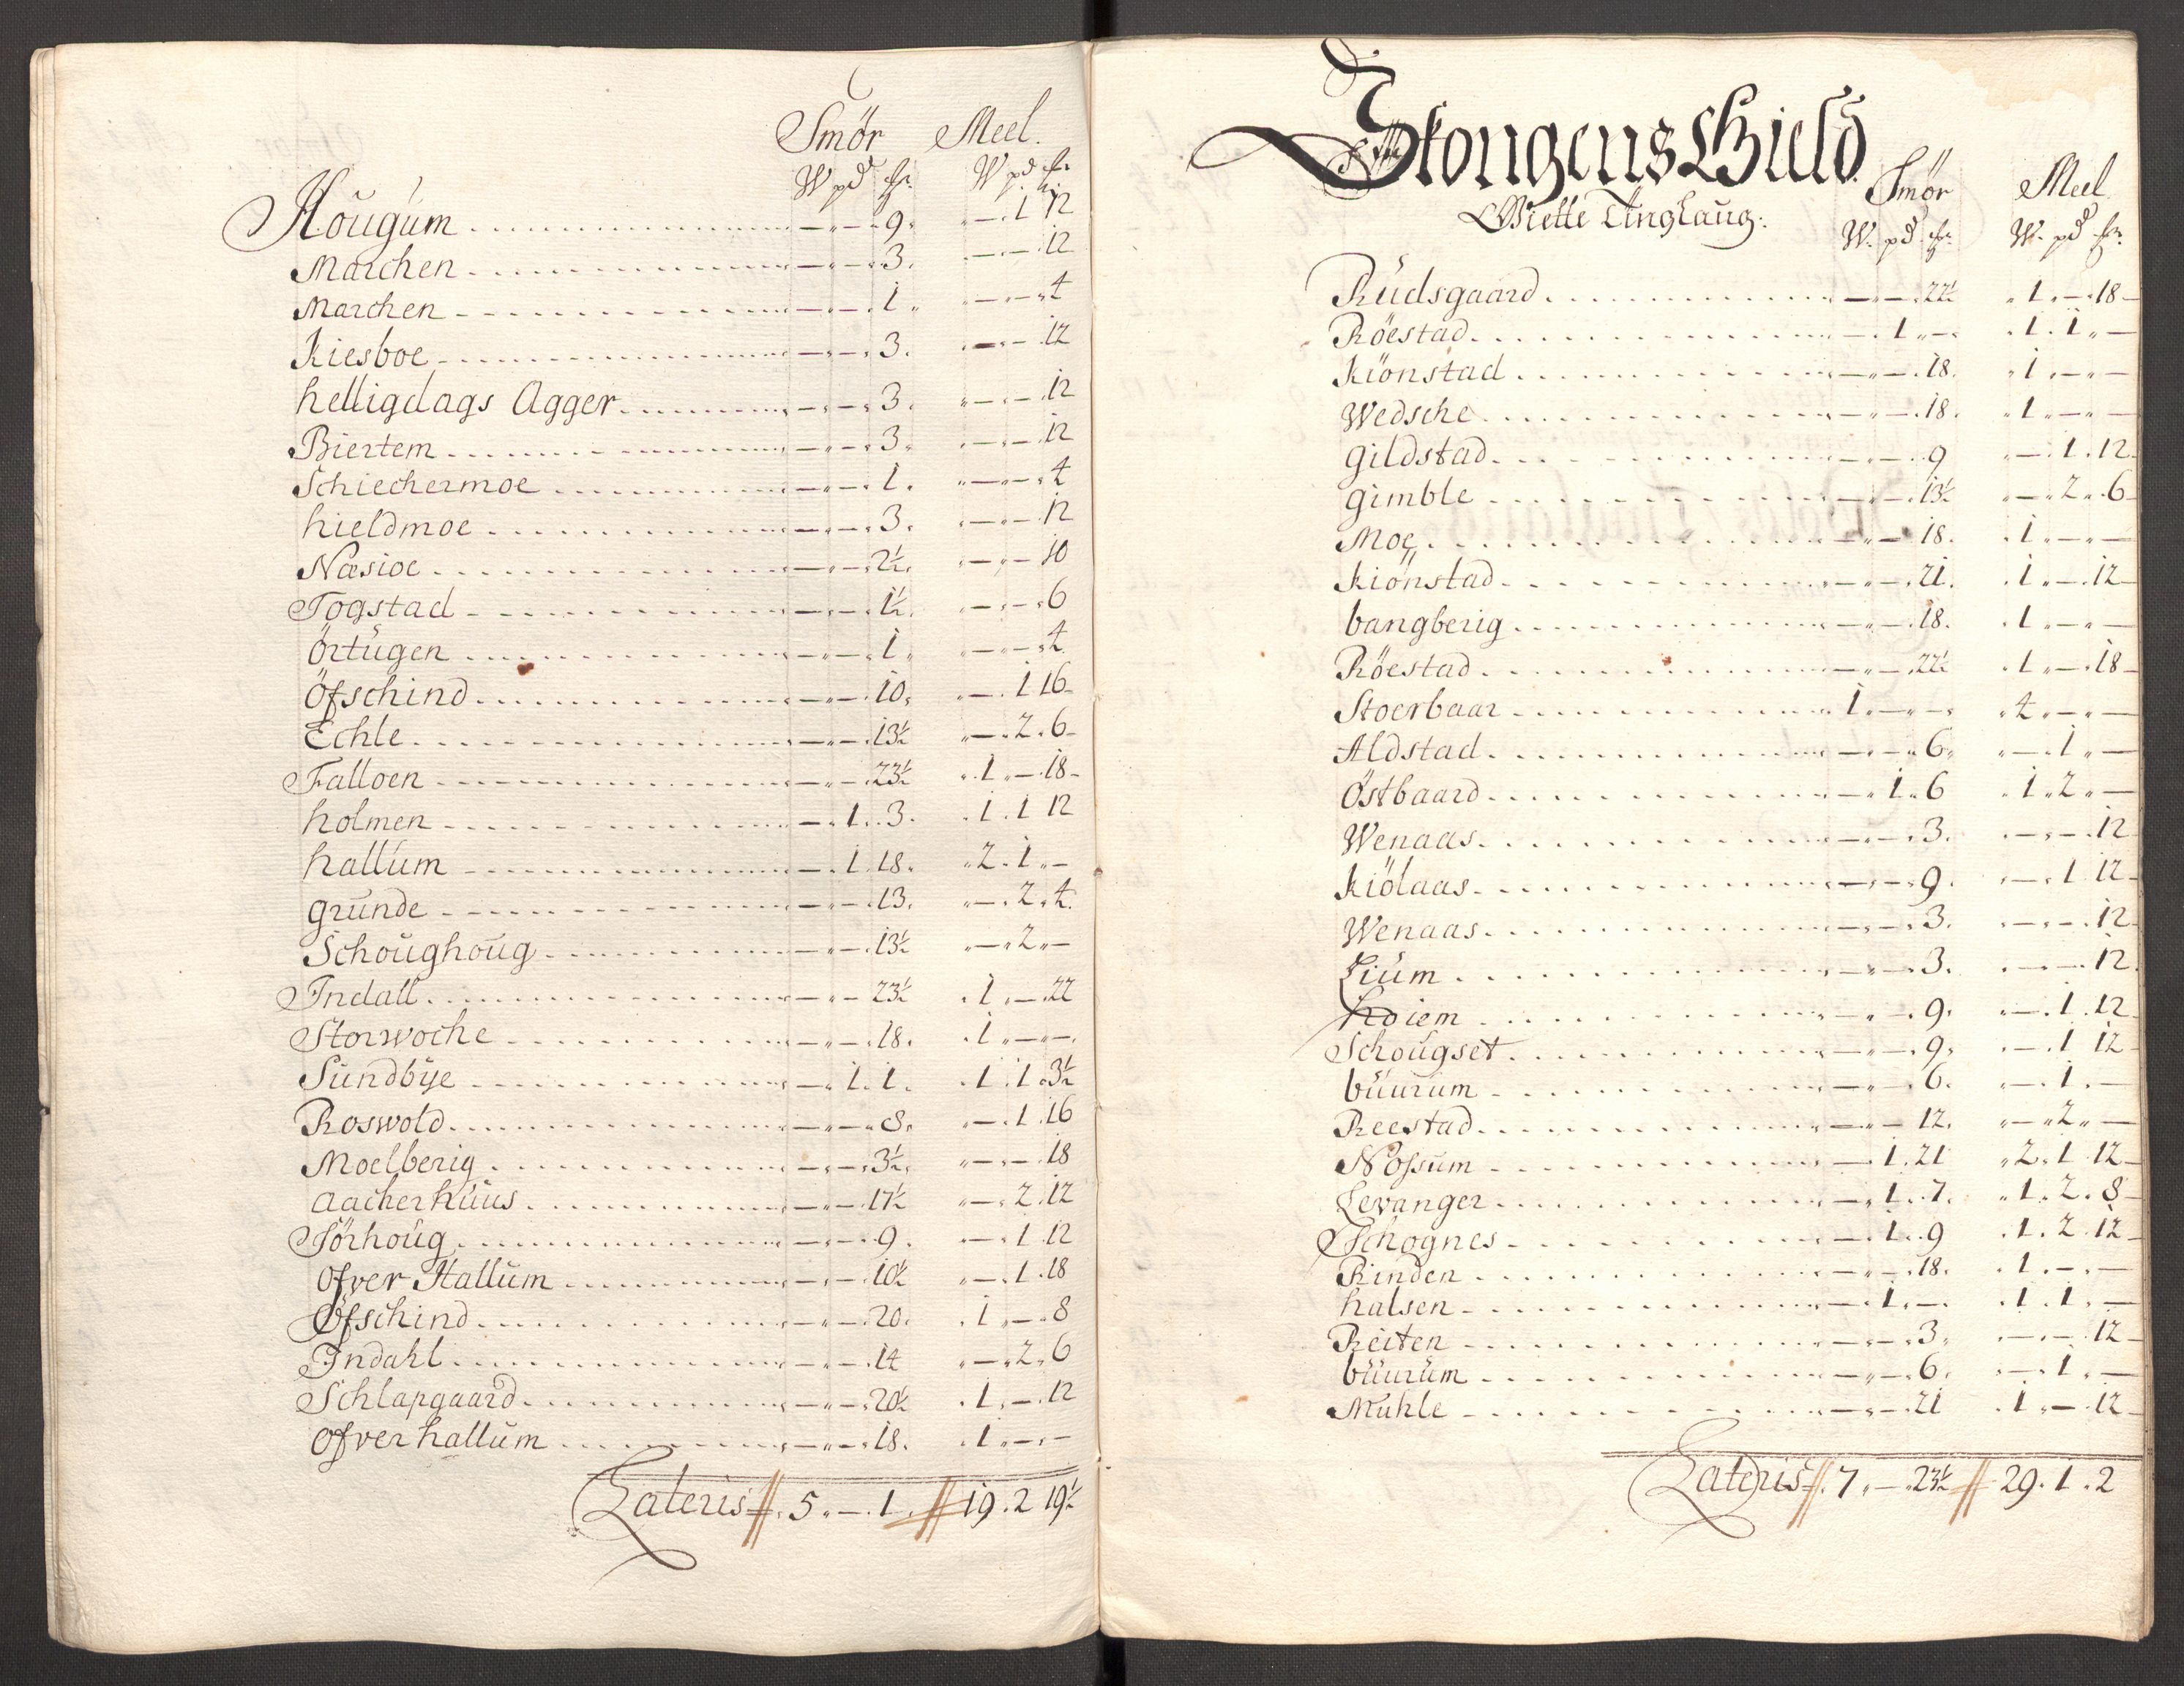 Smör Meel.
W pd mr. W pd mr.
Hougum . . . — „ — „ 9. „ — . 1 12
Marchen . . . — „ — „ 3. „ — „ — 12
Marchen . . . — „ — „ 1 „ „ — „ — „ 4
Kiesboe . . . — „ — „ 3. „ — „ — 12
helligdags Agger . . . — „ — „ 3. „ — „ — 12
Biertem . . . — „ — „ 3. „ — „ — 12
Schiechermoe . . . — „ — „ 1. „ — „ — „ 4
hieldmoe . . . — „ — „ 3. „ — „ — 12
Næsioe . . . — „ — „ 2½. „ — „ — 10
Togstad . . . — „ — „ 1½. „ — „ — „ 6
Örtugen . . . — „ — „ 1 „ „ — „ — „ 4
Öfschind . . . — „ — „ 10. „ — . 1 16
Echle . . . — „ — „ 13½ „ — . 2 . 6
Falloen . . . — „ — „ 23½ . 1 „ — 18
holmen . . . — . 1 . 3. . 1 . 1 12
hallum . . . — . 1 . 18. „ 2 . 1 „ —
grunde . . . — „ — „ 13. „ — . 2 . 4.
Schoughoug . . . — „ — „ 13½ „ — „ 2 „ —
Indall . . . — „ — 23½ . 1 „ — 22
Storwoche . . . — „ — „ 18. . 1 „ — „ —
Sundbye . . . — . 1 . 1. . 1 . 1 . 3½
Roswold . . . — „ — „ 8. „ — . 1 . 16
Moelberig . . . — „ — „ 3½. „ — „ — 18
Aacherhuus . . . — „ — „ 17½ „ — . 2 . 12
Sörhoug . . . — „ — „ 9. „ — . 1 12
Ofver Hallum . . . — „ — „ 10½ „ — . 1 . 18
Öfschind . . . — „ — „ 20. . 1 „ — „ 8
Indahl . . . — „ — „ 14 „ — „ 2 „ 6
Schlapgaard . . . — „ — „ 20½ . 1 „ — 12
Ofverhallum . . . — „ — „ 18. . 1 „ — „ —
Lateris // . 5 „ — . 1 . // 19 . 2 19½
Stongens Gield
Smör Meel
Wielle Tinglaug.
W. pd. mr. W. pd mr.
Rudsgaard . . . — „ — . 22½ . 1 „ — 18
Röestad . . . — 1 „ — . 1 . 1 „ —
Kiönstad . . . — „ — . 18. „ 1 „ — „ —
Wedsche . . . — „ — . 18. „ 1 „ — „ —
gildstad . . . — „ — . 9 „ — . 1 . 12
gimble . . . — „ — . 13½ „ — . 2 „ 6
Moe . . . — „ — 18. . 1 „ — „ —
Kiönstad . . . — „ — . 21. . 1 „ — 12
bangberig . . . — „ — . 18. . 1 „ — „ —
Röestad . . . — „ — . 22½ . 1 „ — . 18
Stoerbaar . . . 1 „ — „ — „ 4 „ — „ —
Aldstad . . . — „ — „ 6. „ — . 1 „ —
Östbaard . . . — . 1 „ 6 . 1 „ 2 „ —
Wenaas . . . — „ — „ 3. „ — „ — . 12
Kiölaas . . . — „ — „ 9. „ — . 1 12
Wenaas . . . — „ — „ 3. „ — „ — . 12
Lium . . . — „ — „ 3. „ — „ — 12
Hoiem . . . — „ — „ 9. „ — . 1 . 12
Schougset . . . — „ — . 9. „ — . 1 12
buurum . . . — „ — „ 6. „ — . 1 . —
Reestad . . . — „ — 12. „ — „ 2 „ —
Nossum . . . — . 1 . 21 „ 2 . 1 12
Levanger . . . — . 1 . 7. „ 1 . 2 . 8
Schognes . . . — . 1 . 9 . 1 . 2 12
Rinden . . . — „ — . 18. . 1 . — . —
halsen . . . — . 1 . — . 1 . 1 . —
Reiten . . . — „ — „ 3. „ — „ — 12
buurum . . . — „ — „ 6. „ — . 1 „ —
Muhle . . . — „ — . 21 . 1 „ — . 12
Lateris // . 7 „ — . 23½ // 29 . 1 . 2